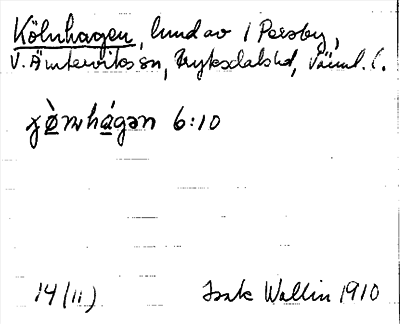 Kölnhagen, lund av / Persby,
V. Ämterviks sn, Fryksdals hd, Värml. l.
6:10
14 (11) Isak Wallin 1910